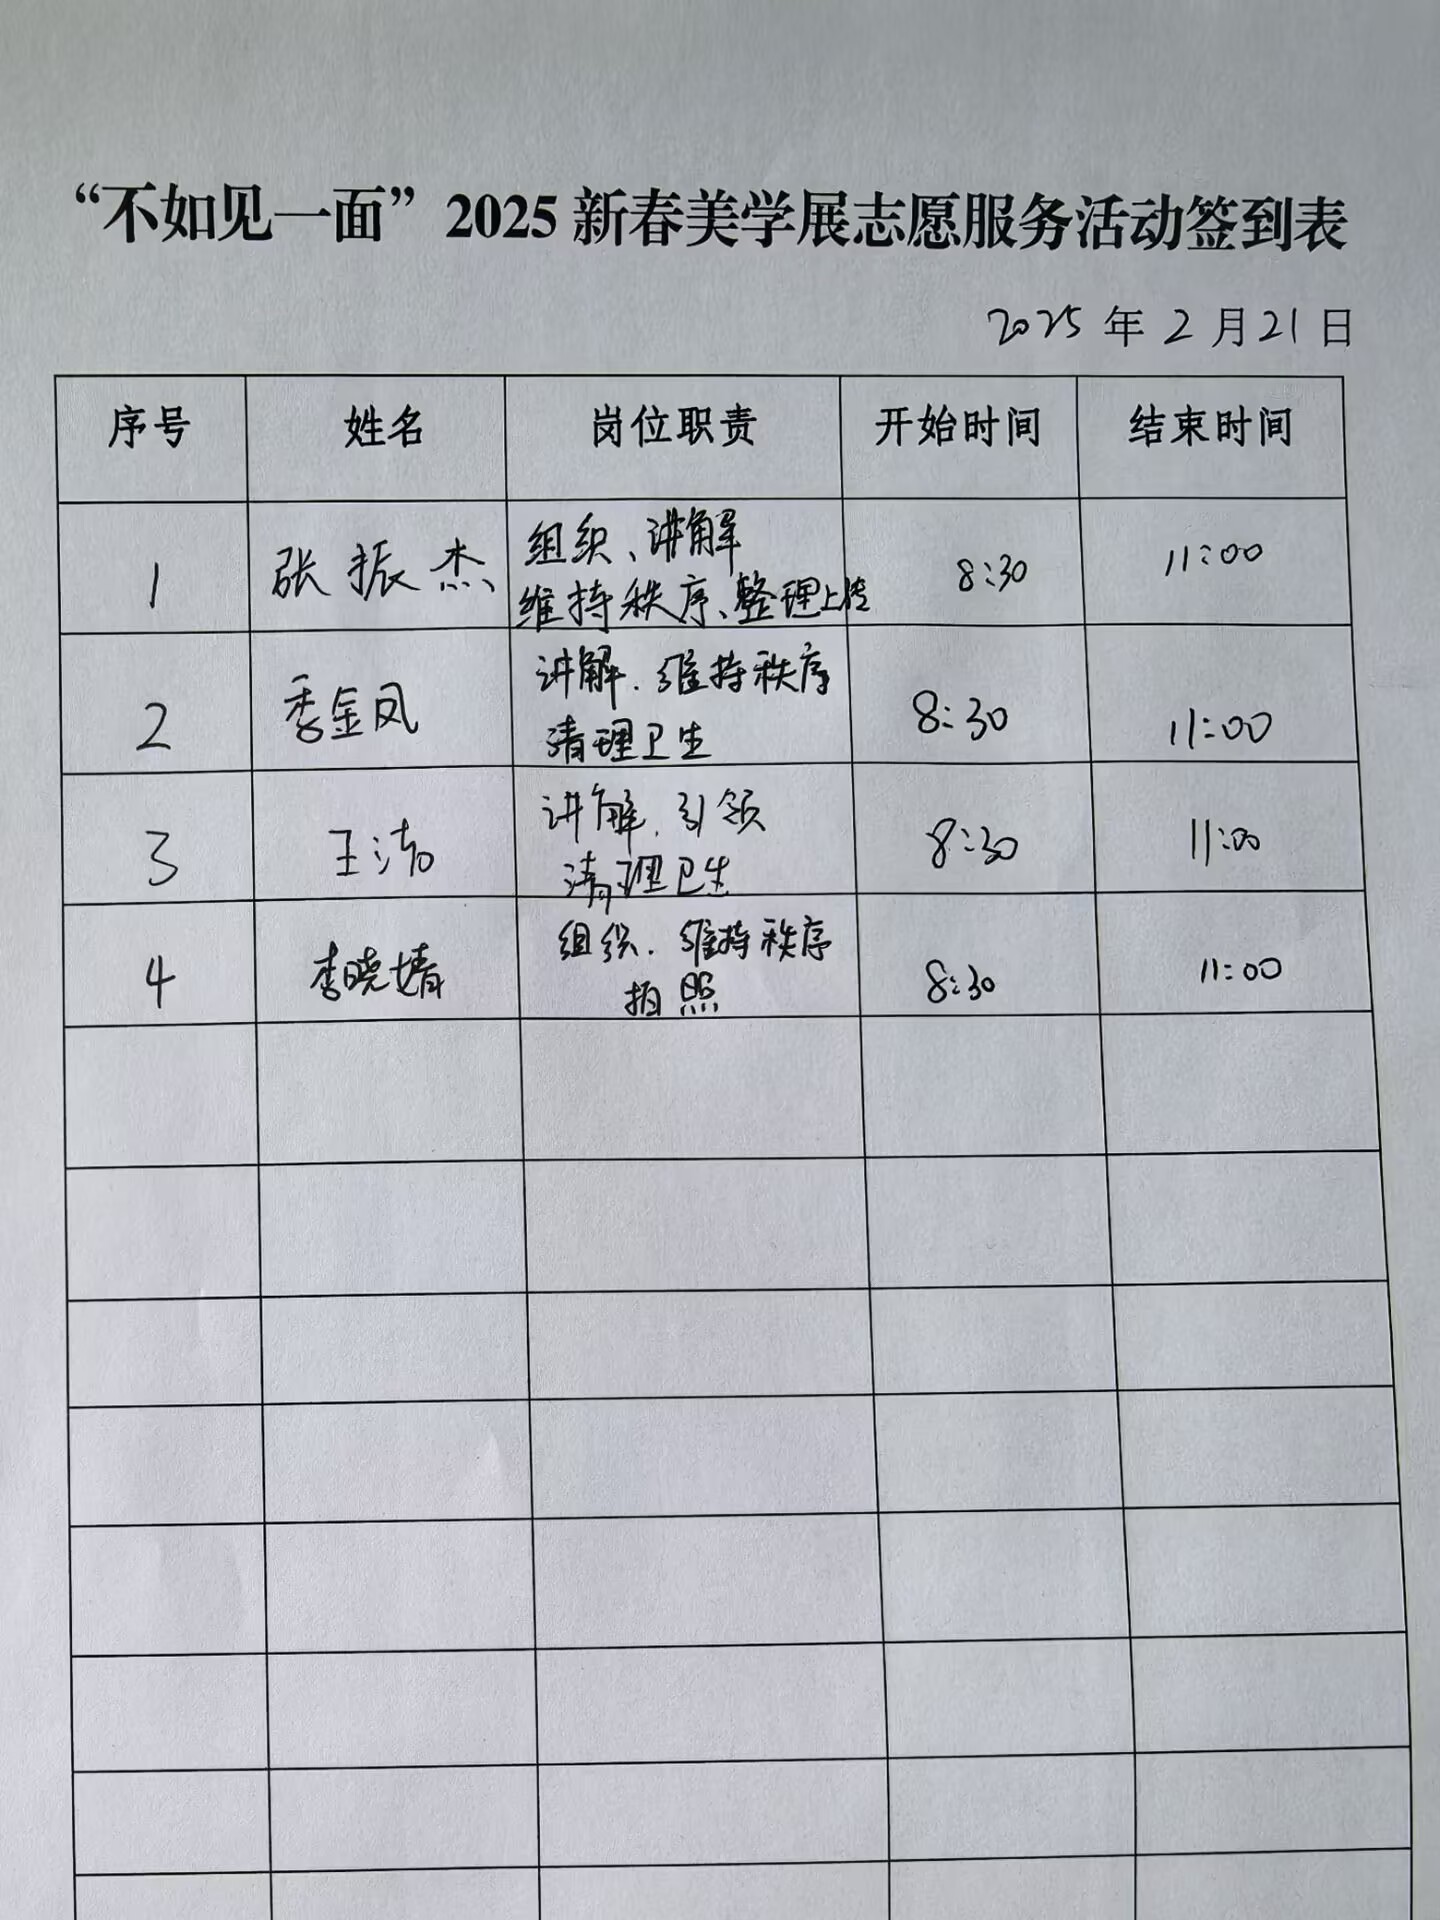 “不如见一面”2025新春美学展志愿服务活动签到表
2025年2月21日
序号 姓名 岗位职责 开始时间 结束时间
1 张振杰 组织、讲解 8:30 11:00
维持秩序、整理上传
2 季金凤 讲解.维持秩序 8:30 11:00
清理卫生
3 王涛 讲解.引领 8:30 11:00
清理卫生
4 李晓婧 组织.维持秩序 8:30 11:00
拍照